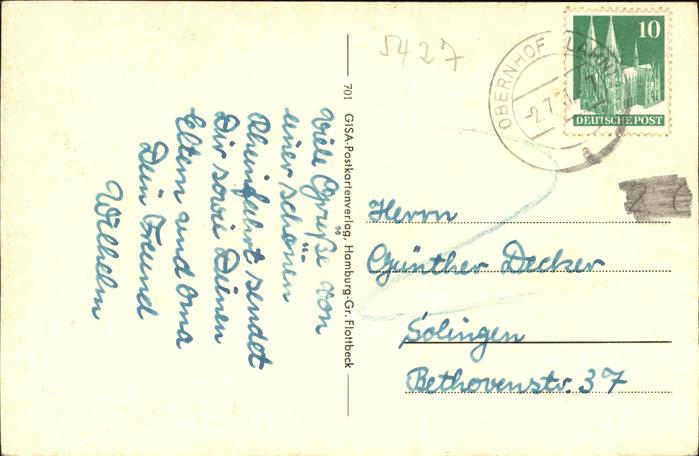 5427
OBERNHOF (LAHN)
-2.7.
10
DEUTSCHE POST
Viele Grüße von
einer schönen
Rheinfahrt sendet
Dir sowie Deinen
Eltern und Oma
Dein Freund
Wilhelm
701 GISA-Postkartenverlag, Hamburg-Gr. Flottbeck
Herrn
Günther Decker
Solingen
Bethovenstr. 37